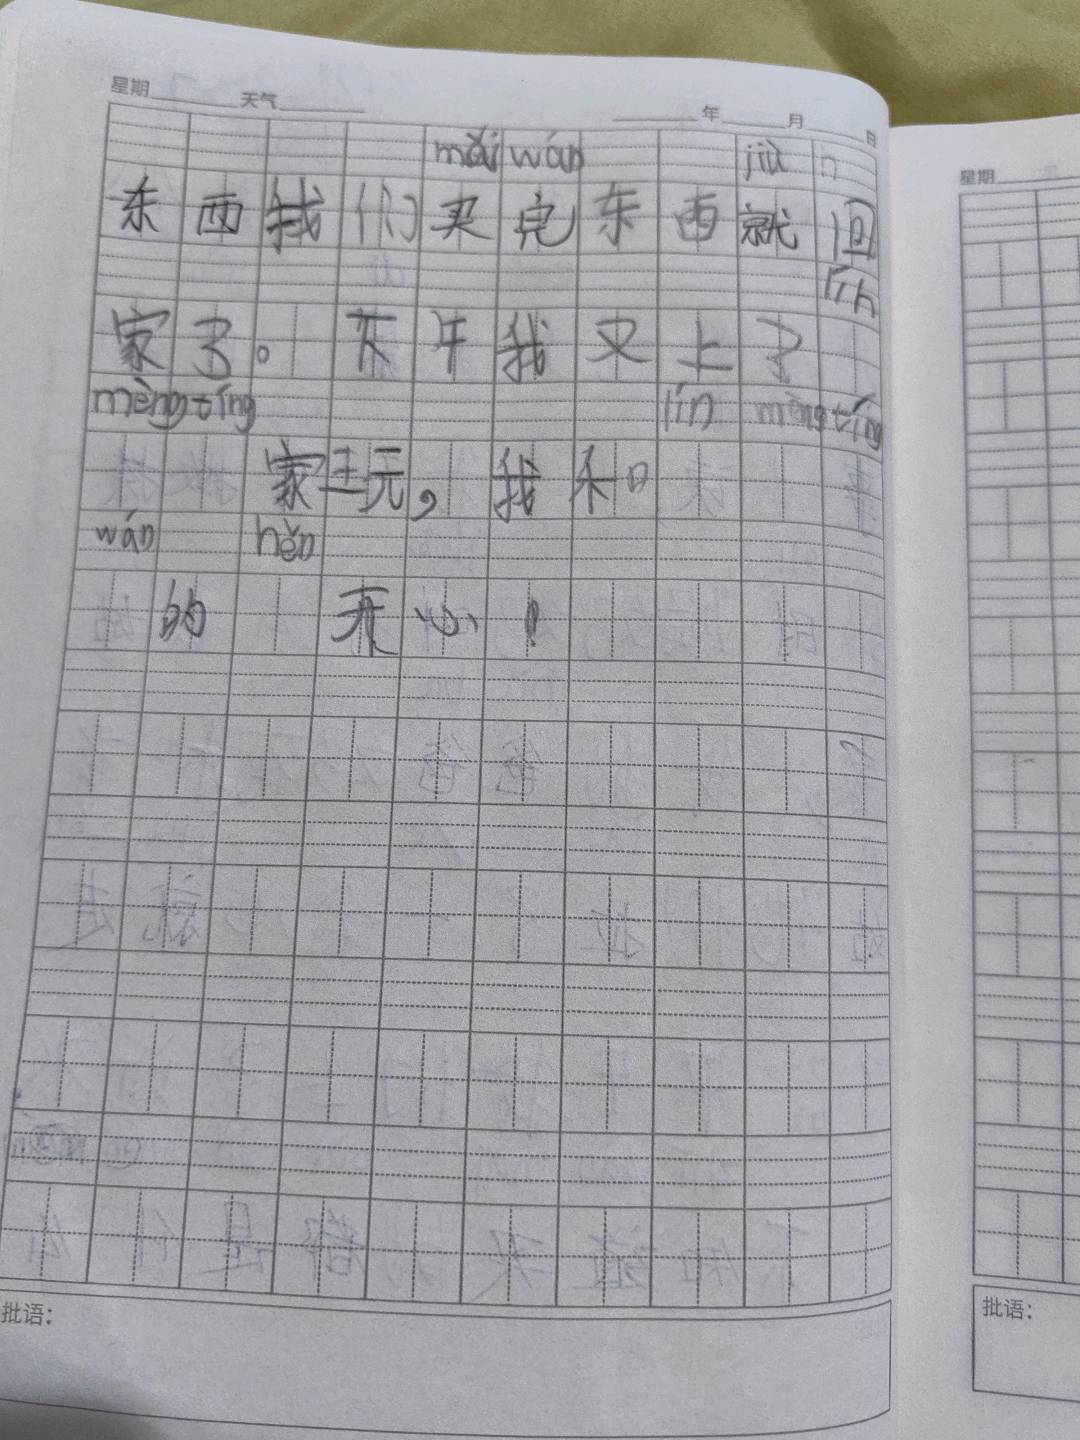 星期 天气 年 月 日
mǎi wán jiù
东西我们买完东西就回
lín
家了。下午我又上了
mèngtíng lín mèngtíng
家玩，我和
wán hěn
的 开心！
批语：
星期
批语：